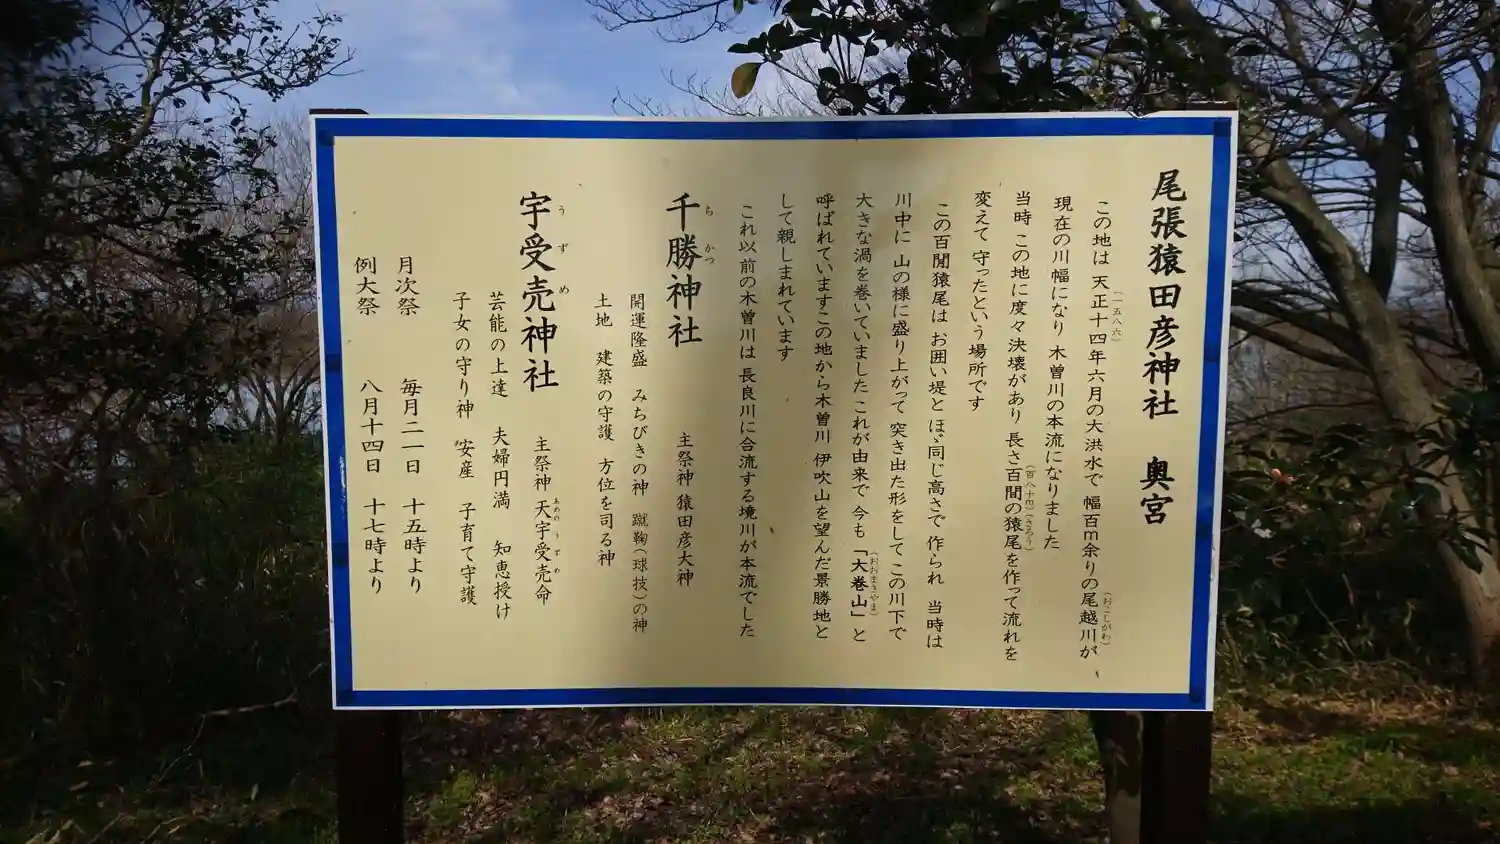 尾張猿田彦神社　奥宮
この地は 天正十四年(一五八六)六月の大洪水で 幅百m余りの尾越川(おこしがわ)が
現在の川幅になり 木曽川の本流になりました
当時 この地に度々決壊があり 長さ百間(百八十m)の猿尾(さるう)を作って流れを
変えて 守ったという場所です
この百間猿尾は お囲い堤とほゞ同じ高さで 作られ 当時は
川中に 山の様に盛り上がって 突き出た形をして この川下で
大きな渦を巻いていました これが由来で 今も「大巻山(おおまきやま)」と
呼ばれていますこの地から木曽川 伊吹山を望んだ景勝地と
して親しまれています
これ以前の木曽川は 長良川に合流する境川が本流でした
千勝神社(ちかつ)　主祭神 猿田彦大神
開運隆盛 みちびきの神 蹴鞠(球技)の神
土地 建築の守護 方位を司る神
宇受売神社(うずめ)　主祭神 天宇受売命(あめのうずめ)
芸能の上達 夫婦円満 知恵授け
子女の守り神 安産 子育て守護
月次祭 毎月二一日 十五時より
例大祭 八月十四日 十七時より